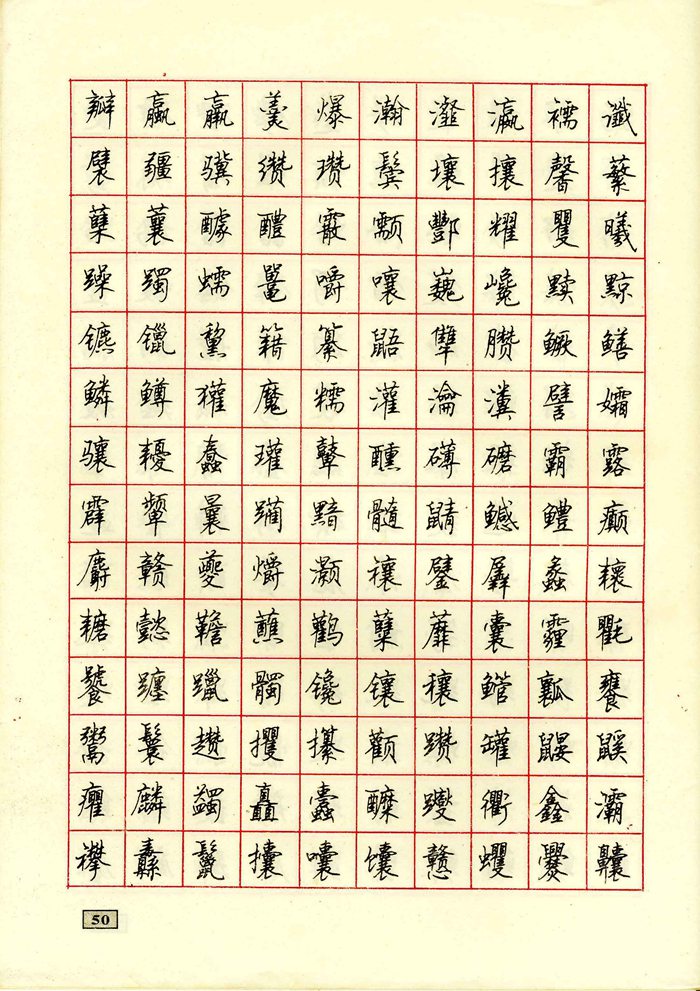 瓣 蠃 羸 羹 爆 瀚 瀣 瀛 襦 谶
襞 疆 骥 缵 瓒 鬓 壤 攘 馨 蘩
蘖 蘘 醵 醴 霰 颥 酆 耀 矍 曦
躁 躅 蠕 鼍 嚼 嚷 巍 巉 黩 黥
镳 镴 黧 籍 纂 鼯 犨 臜 鳜 鳝
鳞 鳟 獾 魔 糯 灌 瀹 瀵 譬 孀
骧 耰 蠢 瓘 鼙 醺 礴 礳 霸 露
霹 颦 曩 躏 黯 髓 鼱 鳡 鳢 癫
麝 赣 夔 爝 灏 禳 鐾 羼 蠡 耲
耱 懿 韂 蘸 鹳 糵 蘼 囊 霾 氍
饕 躔 躐 髑 镵 镶 穰 鳤 瓤 饔
鬻 鬟 趱 攫 攥 颧 躜 罐 鼹 鼷
癯 麟 蠲 矗 蠹 醾 躞 衢 鑫 灞
襻 纛 鬣 攮 囔 馕 戆 蠼 爨 齉
50